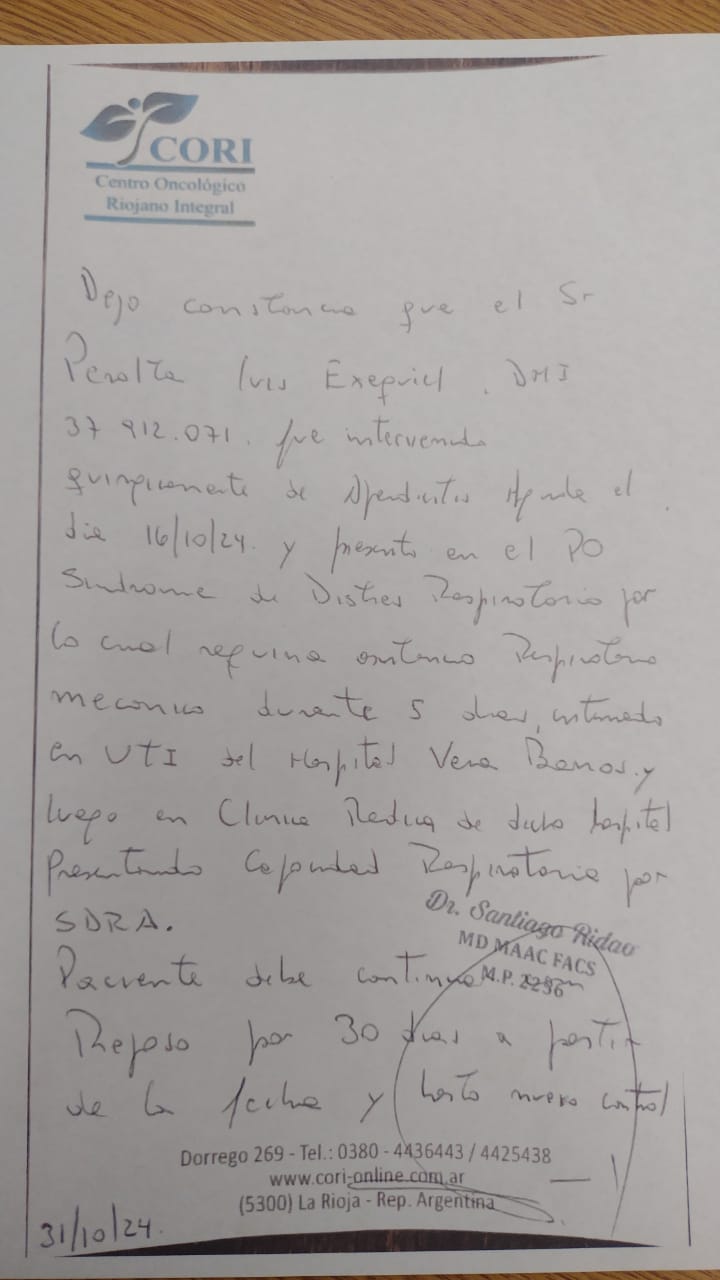 CORI
Centro Oncológico
Riojano Integral
Dejo constancia que el Sr
Peralta Luis Exequiel . DNI
37 912.071. fue intervenido
quirurgicamente de Apendicitis Aguda el
dia 16/10/24. y presento en el PO
Sindrome de Distres Respiratorio por
lo cual requirio asistencia Respiratoria
mecanica durante 5 dias, internado
en UTI del Hospital Vera Barros. y
luego en Clinica Medica de dicho hospital
Presentando Respiratoria por
SDRA.
Dr. Santiago Ridao
MD MAAC FACS
M.P. 2256
Paciente debe continuar con
Reposo por 30 dias a partir
de la fecha y hasta nuevo control
Dorrego 269 - Tel.: 0380 - 4436443 / 4425438
www.cori-online.com.ar
(5300) La Rioja - Rep. Argentina
31/10/24.